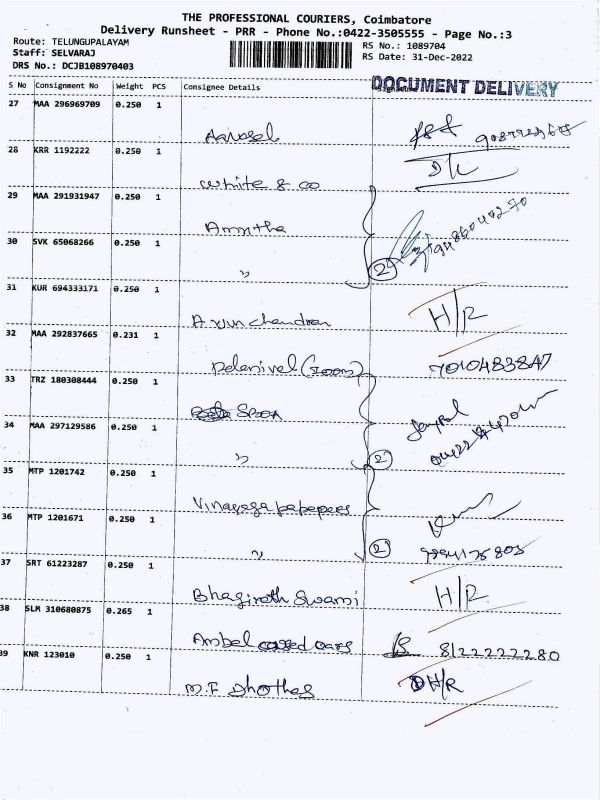 THE PROFESSIONAL COURIERS, Coimbatore
Delivery Runsheet - PRR - Phone No.:0422-3505555 - Page No.:3
Route: TELUNGUPALAYAM
RS No.: 1089704
Staff: SELVARAJ
RS Date: 31-Dec-2022
DRS No.: DCJB108970403
S No Consignment No Weight PCS Consignee Details
DOCUMENT DELIVERY
27 MAA 296969709 0.250 1
28 KRR 1192222 0.250 1
White & co
29 MAA 291931947 0.250 1
Amritha
30 SVK 65068266 0.250 1
" 2
31 KUR 694333171 0.250 1
Arun chandran H/R
32 MAA 292837665 0.231 1
Palanivel 7010483847
33 TRZ 180308444 0.250 1
34 MAA 297129586 0.250 1
" 2
35 MTP 1201742 0.250 1
Vinayaga
36 MTP 1201671 0.250 1
" 2
37 SRT 61223287 0.250 1
Bhagirath Swami H/R
38 SLM 310680875 0.265 1
Ambal cars 8122222280
39 KNR 123010 0.250 1
M.F Dhothes H/R